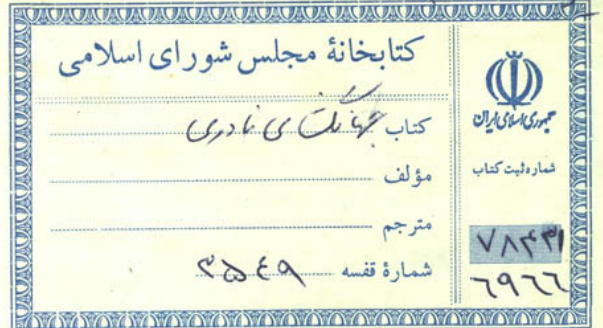 کتابخانهٔ مجلس شورای اسلامی
کتاب جهانگشای نادری
مؤلف
مترجم
شمارهٔ قفسه ۳۵۴۹
جمهوری اسلامی ایران
شماره ثبت کتاب
۷۸۴۳۱
۶۹۶۶